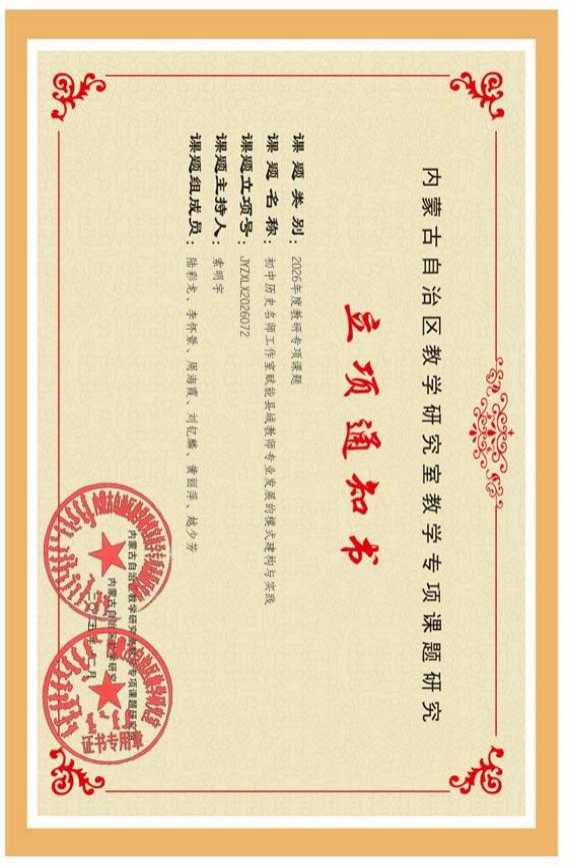 内蒙古自治区教学研究室教学专项课题研究
立项通知书
课题类别：2026年度教研专项课题
课题名称：初中历史名师工作室赋能县域教师专业发展的模式建构与实践
课题立项号：JYZXLX2026072
课题主持人：索明宇
课题组成员：陆彩龙、李怀景、周海霞、刘钇麟、黄丽萍、越少芳
内蒙古自治区教学研究室教学专项课题研究
内蒙古自治区教学研究
证书专用章